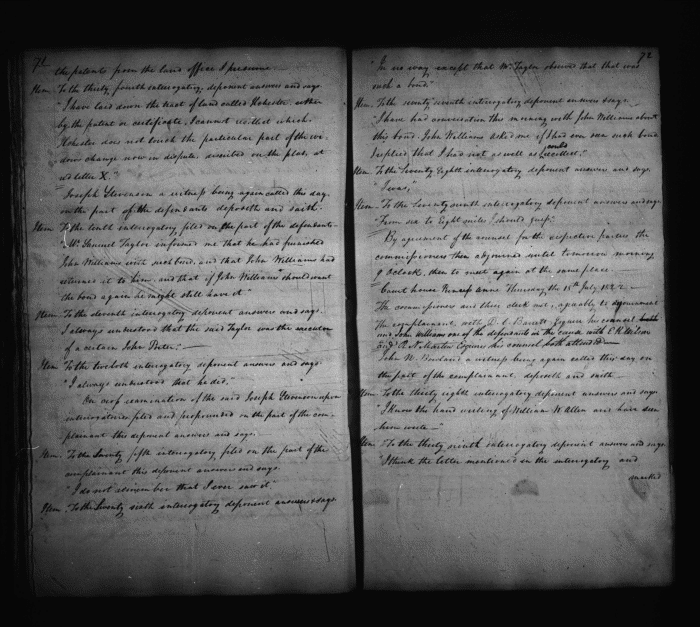 71
the patents from the land office I presume —
Item. To the thirty fourth interrogatory, deponent answers and says
"I have laid down the tract of land called Rochester either
by the patent or certificate, I cannot tell which.
Rochester does not touch the particular part of the
down change now in dispute, described on the plat, at
red letter X."
Joseph Stevenson a witness being again called this day
on the part of the defendants deposeth and saith.
Item To the tenth interrogatory filed on the part of the defendants
"Mr Samuel Taylor informed me that he had furnished
John Williams with such bond, and that John Williams had
returned it to him, and that if John Williams should want
the bond again he might still have it"
Item To the eleventh interrogatory deponent answers and says.
I always understood that the said Taylor was the executor
of a certain John Porter."
Item To the twelfth interrogatory deponent answers and says
"I always understood that he did."
On cross examination of the said Joseph Stevenson upon
interrogatories filed and propounded on the part of the com-
plainant this deponent answers and says.
Item. To the Twenty fifth interrogatory filed on the part of the
complainant this deponent answers and says.
"I do not remember that I ever saw it"
Item. To the Twenty sixth interrogatory deponent answers & says
72
"In no way except that Mr Taylor observed that that was
such a bond"
Item. To the twenty seventh interrogatory deponent answers & says.
"I have had conversation this morning with John Williams about
this bond. John Williams asked me if I had ever seen such bond
I replied that I had not as well as I could recollect."
Item To the Twenty Eighth interrogatory deponent answers and says.
"I was,"
Item - To the Twenty ninth interrogatory deponent answers and says
"From six to Eight miles I should guess."
By agreement of the counsel for the respective parties the
commissioners then adjourned until tomorrow morning
9 Oclock, then to meet again at the same place.
Court house Princess anne Thursday the 18th July 1822 —
The commissioners and their clerk met, agreably to adjournment
The complainant, with counsel
and John Williams one of the defendants in the cause with
Esqr Martin Esquires his counsel both attended —
John W. Rowland a witness being again called this day on
the part of the complainant, deposeth and saith —
Item To the thirty eighth interrogatory deponent answers and says.
"I know the hand writing of William W Allen and have seen
him write —"
Item To the thirty ninth interrogatory deponent answers and says.
"I think the letter mentioned in the interrogatory and
marked